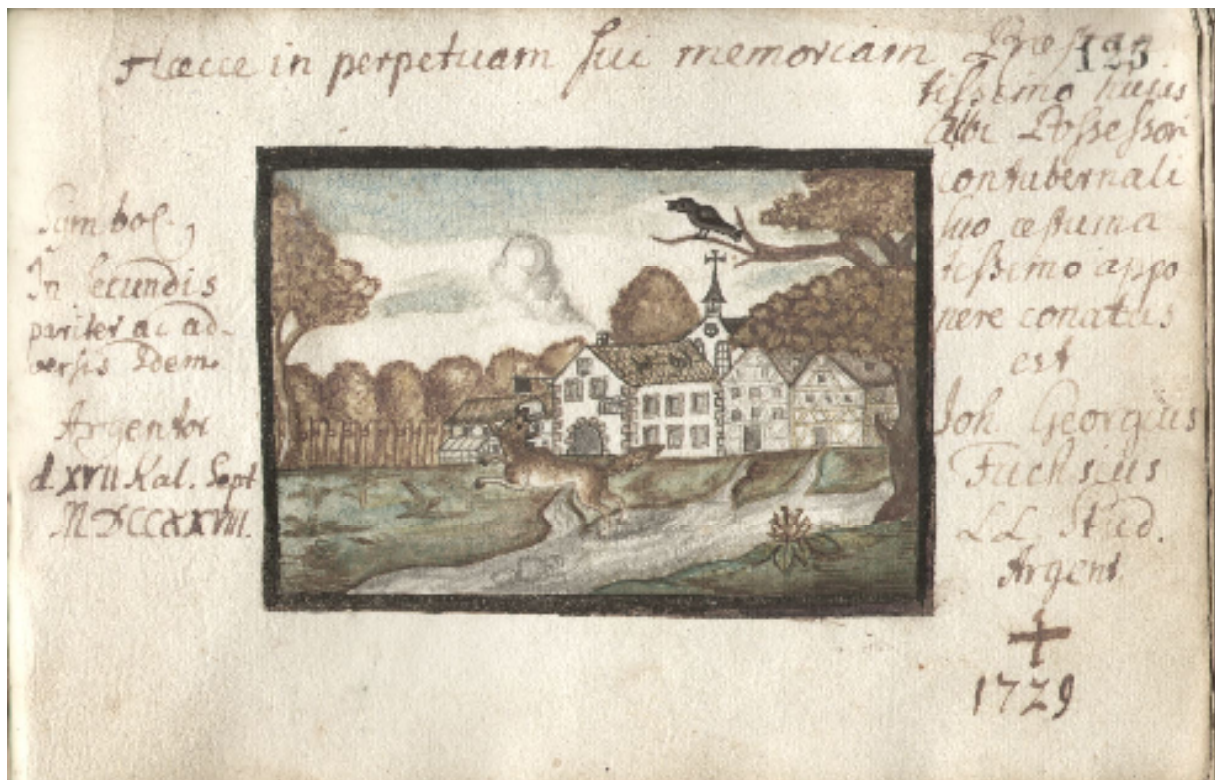 Haecce in perpetuam sui memoriam Praes
123
tissimo hujus
Albi Possessori
contubernali
suo aestuma
tissimo appo
nere conatus
est
Joh. Georgius
Fuchsius
LL. Stud.
Argent.
+
1729
Symbol.
In secundis
pariter ac ad-
versis Idem.
Argentor
d. XVII Kal. Sept
MDCCXXVIII.